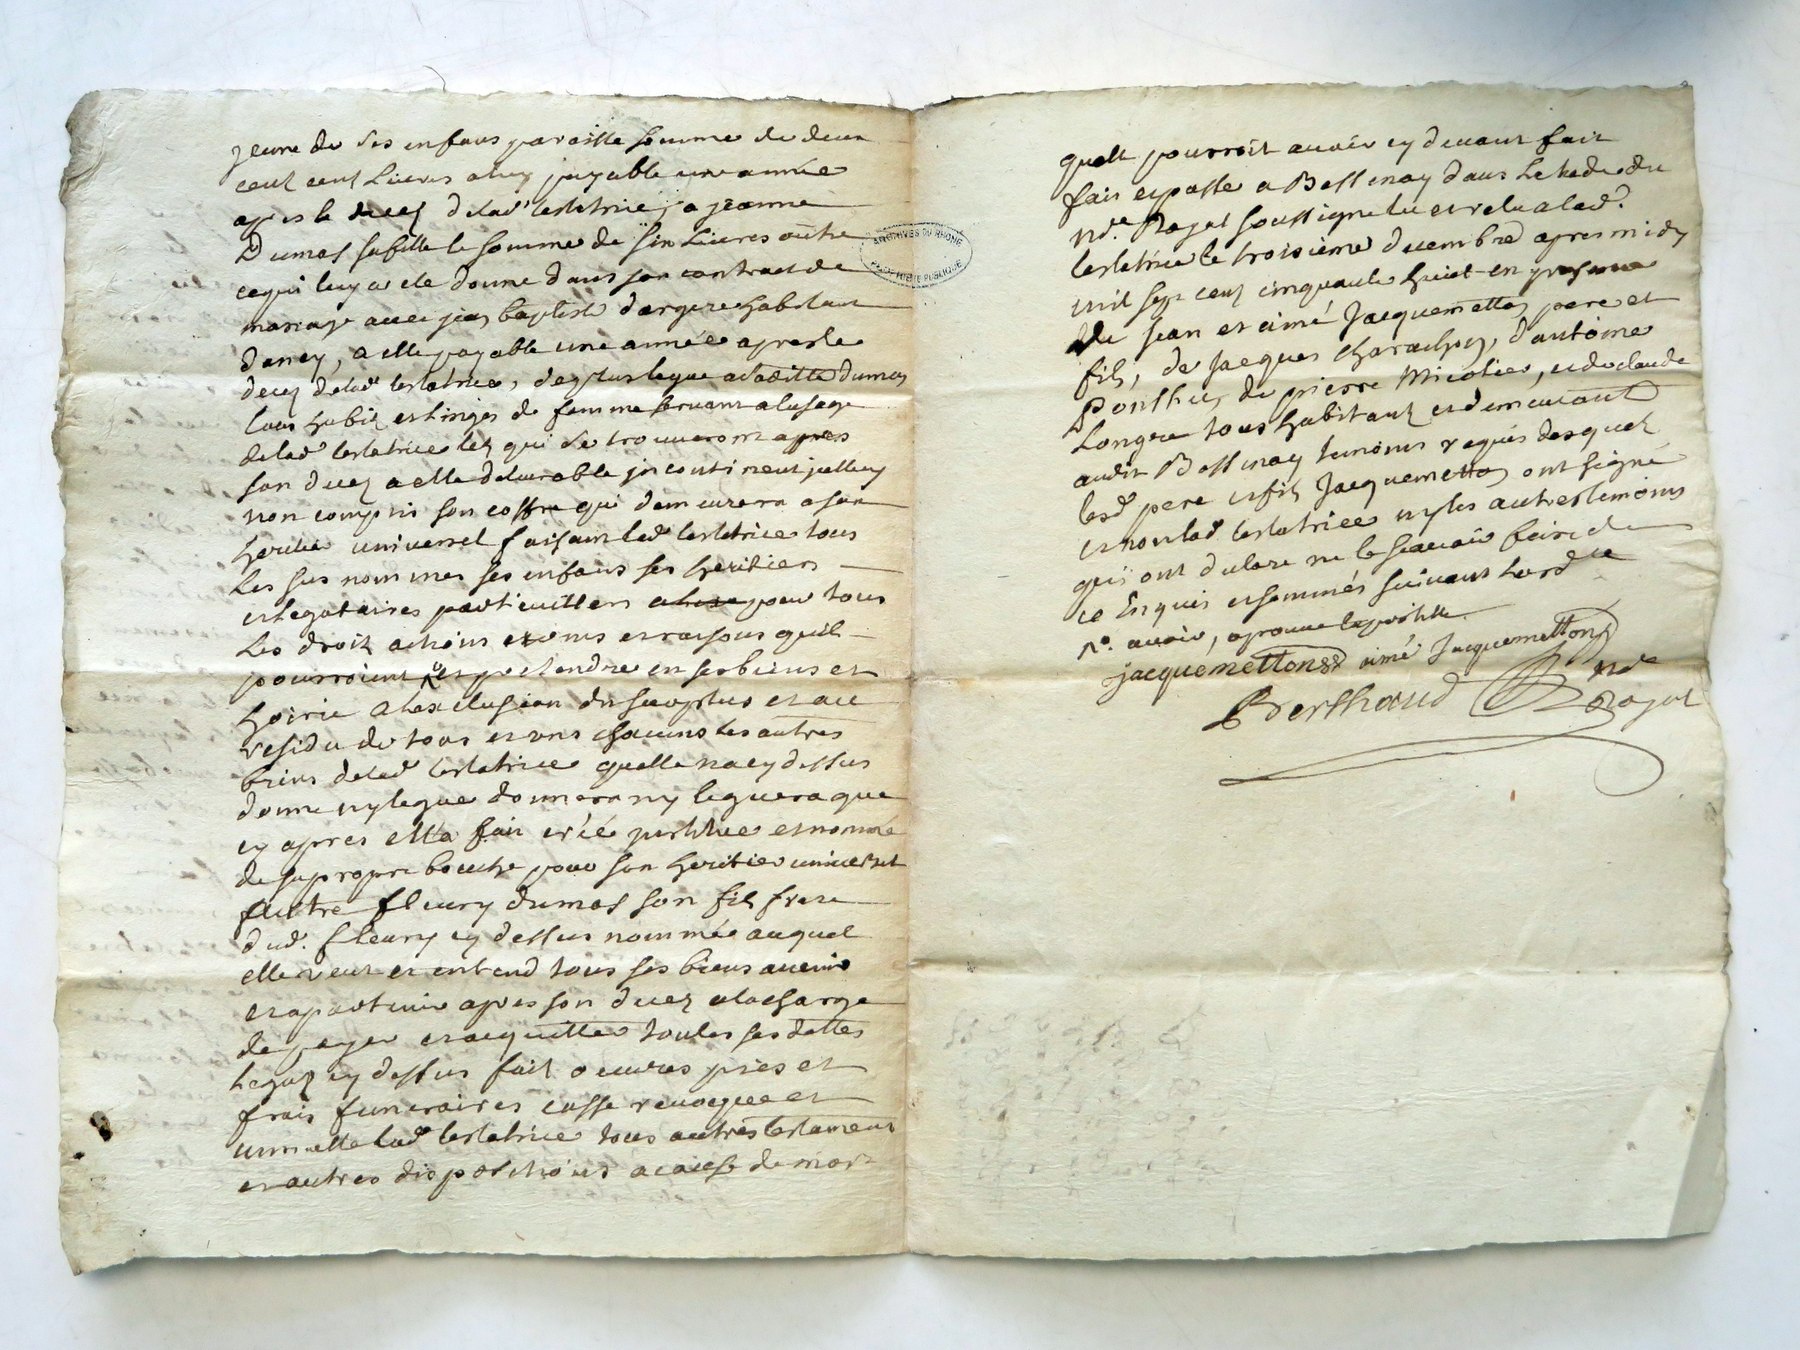 jeune de ses enfans pareille somme de deux
cent cent Livres aluy payable une année
apres le decez delade testatrice, a jeanne
Dumas sa fille la somme de six Livres outre
cequi luy a ete donné dans son contract de
mariage avec jean baptiste dargere habitant
dancy, a elle payable une année apres le
decez delade testatrice, deplus legue aladitte dumas
tous habits et linges de femme servant alusage
delade testatrice telz qui se trouveront apres
son decez a elle delivrable incontinent jcelluy
non compris son coffre qui demeurera a son
heritier universel faisant lade testatrice tous
Les sus nommes ses enfans ses heritiers
et legataires particulliers pour tous
Les droitz actions et noms et raisons quils
pourroient et pretendre en ses biens et
hoirie a lexclusion du surplus et au
residu de tous et uns chacuns les autres
biens delade testatrice quelle na cy dessus
donné ny legué donnera ny leguera que
cy apres ella fait créé institue et nomme
de sa propre bouche pour son heritier universel
autre fleury dumas son fils frere
dud. fleury cy dessus nommée auquel
elle veut et entend tous ses biens avenir
et apartenir apres son decez alacharge
de payer et acquitter toutes ses dettes
Legatz cy dessus faitz oeuvres pies et
frais funeraires casse revoque et
annulle lade testatrice tous autres testament
et autres dispositions acause de mort
quelle pourroit avoir cy devant fait
fait et passé a Bessenay dans Letude du
Nre. Ragot soussigné lu et relu a lad.
testatrice le troisieme decembre apres midy
mil sept cent cinquante huict en presence
de jean et aimé Jacquemetton pere et
fils, de jacques, dantoine
Ponthus, de pierre Micolier, et de claude
Longre tous habitant et demeurant
audit Bessenay temoins requis desquelz
lesd pere et fils Jacquemetton ont signé
et non lad testatrice ny les autres temoins
qui ont declaré ne le scavoir faire de
ce Enquis et sommés suivant Lord ce
jacquemetton aimé Jacquemetton
Berthaud Nre
Ragot
ARCHIVES DU RHONE
PROPRIÉTÉ PUBLIQUE